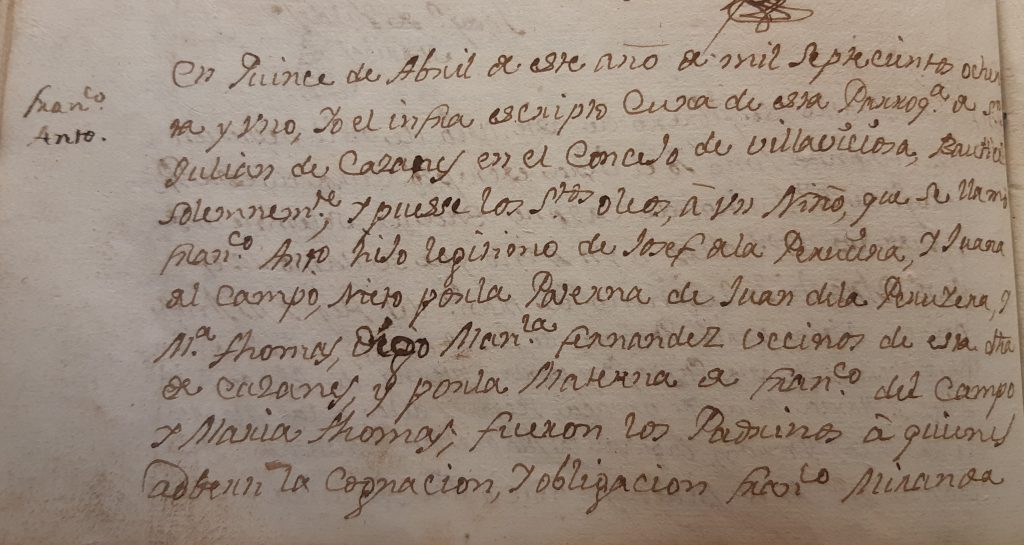 Fran.co
Anto.
En Quince de Abril de este año de mil septecientos ochen
ta y uno, Yo el infra escripto Cura de esta Parroq.a de Sn
Julian de Cazanes en el Concejo de Villaviciosa, Bautice
solemnem.te, y pusse los S.tos oleos, â un Niño, que se llamò
Fran.co Anto hijo legitimo de Josef dela Peruyera, Y Juana
del Campo, Nieto por la Paterna de Juan dela Peruyera, Y
M.a thomas, Digo Man.la Fernandez vecinos de esta dha
de Cazanes, y por la Materna de Fran.co del Campo
Y Maria thomas, fueron los Padrinos â quienes
adberti la Cognacion, Y obligacion Fran.co Miranda